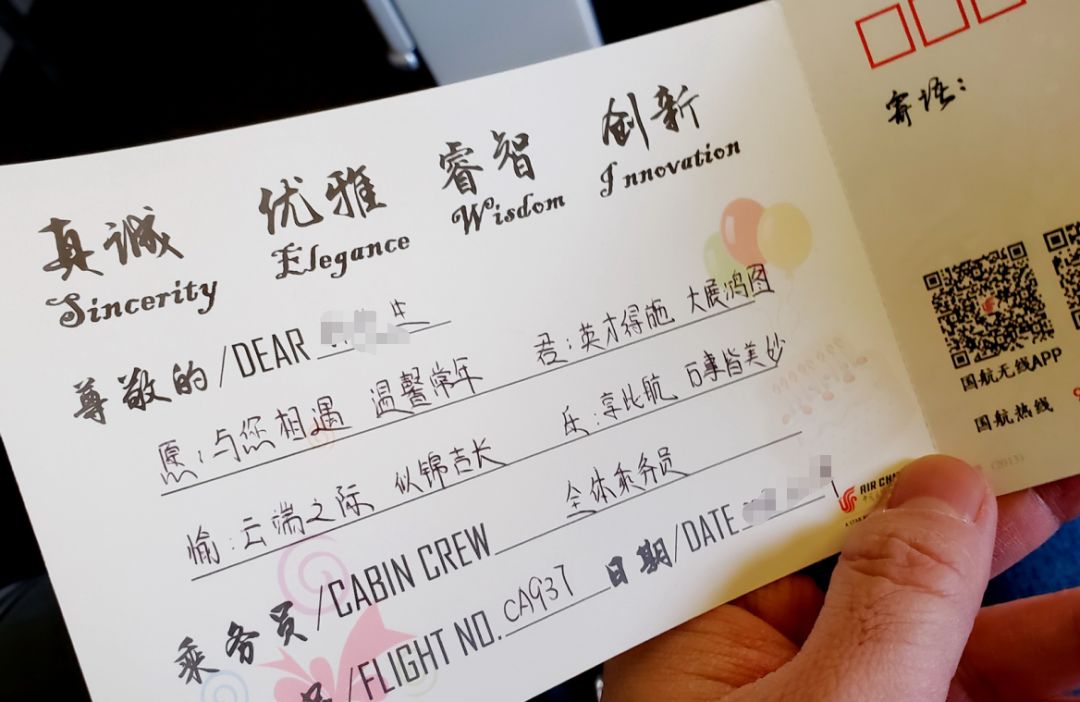 真诚 优雅 睿智 创新
Sincerity Elegance Wisdom Innovation
尊敬的/DEAR
愿:与您相遇 温馨常年 君:英才得施 大展鸿图
愉:云端之际 似锦吉长 乐:享此航 百事皆美妙
乘务员/CABIN CREW 全体乘务员
/FLIGHT NO. CA937 日期/DATE
寄语:
国航无线APP
国航热线
(2013)
AIR CHI